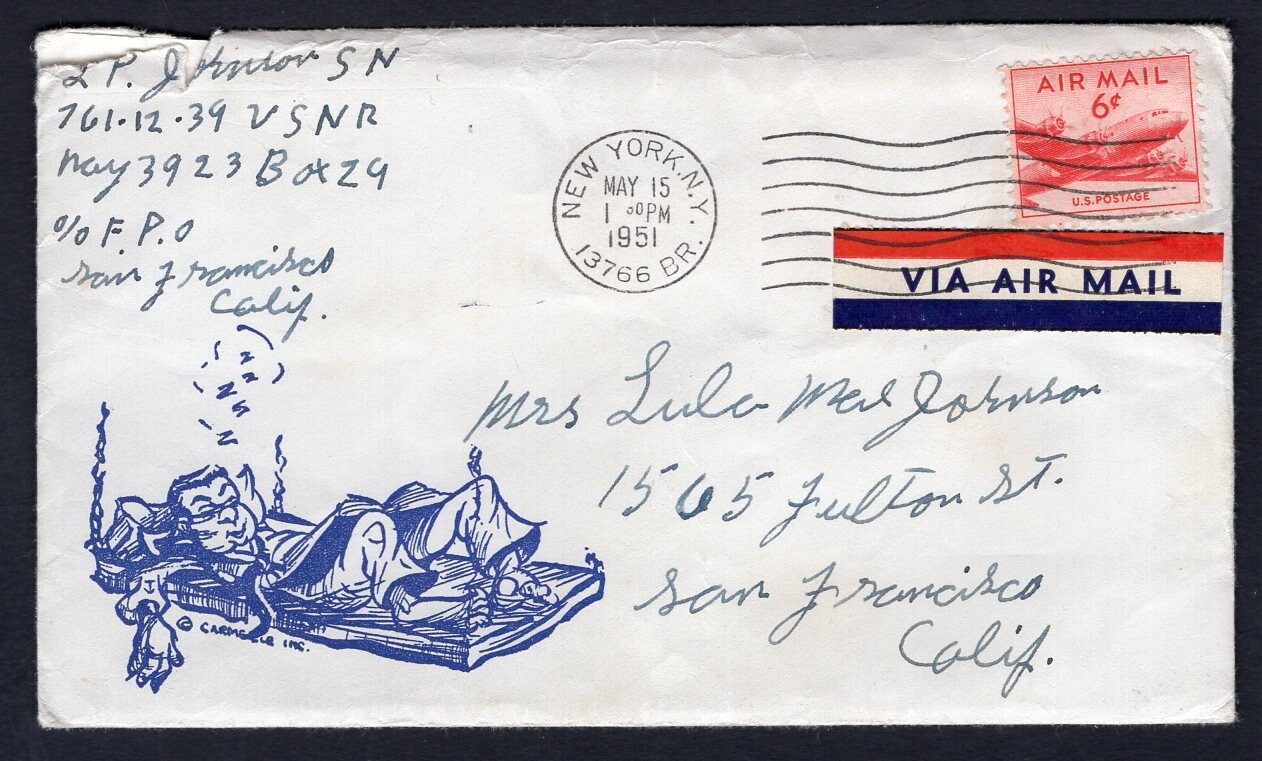 L P. Johnson S N
761·12·39 USNR
Nav 3923 Box 29
c/o F.P.O
San Francisco
Calif.
NEW YORK, N.Y.
MAY 15
1 00PM
1951
13766 BR.
AIR MAIL
6¢
U.S. POSTAGE
VIA AIR MAIL
Mrs Lula Mae Johnson
1565 Fulton St.
San Francisco
Calif.
z
z z
z
z
©
INC.